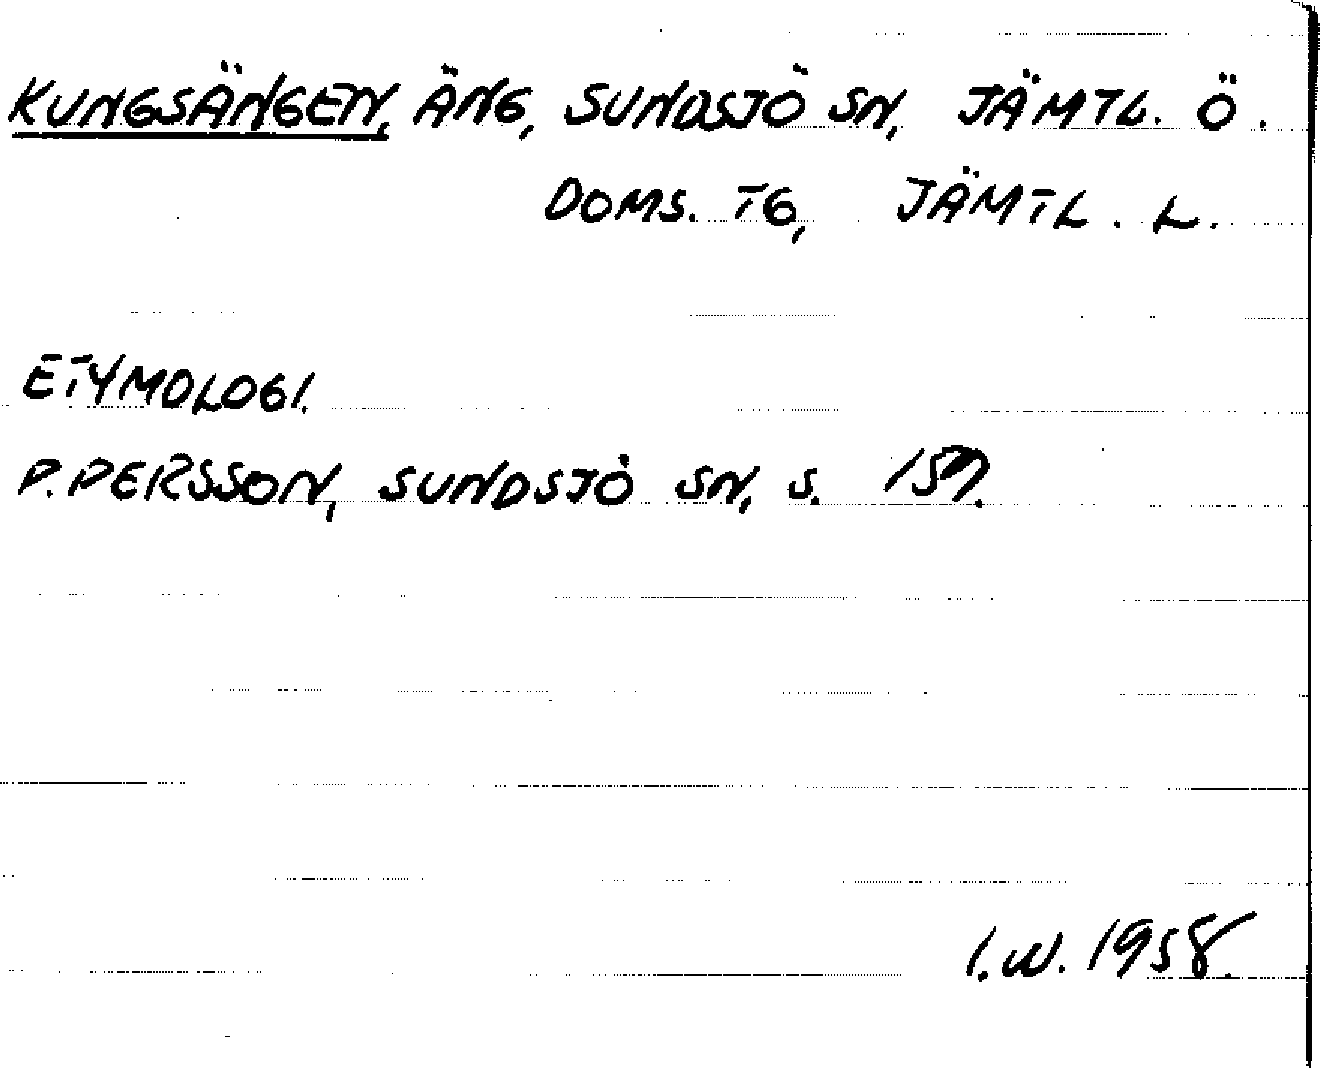 KUNGSÄNGEN, ÄNG, SUNDSJÖ SN, JÄMTL. Ö.
DOMS. TG, JÄMTL. L.
ETYMOLOGI.
P. PERSSON, SUNDSJÖ SN, S.
I.W. 1958.